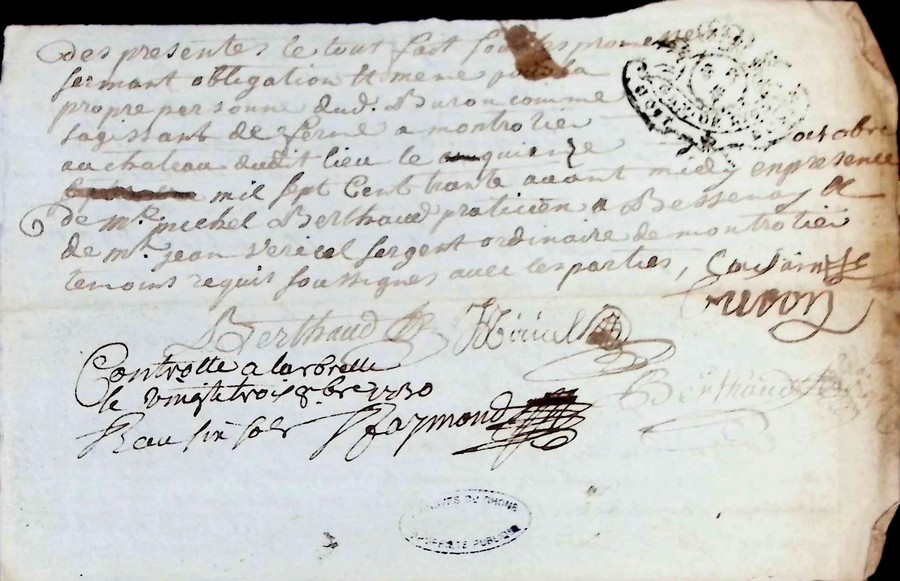 des presentes le tout fait sous les promesses
serment obligation Et meme pour la
propre personne dud. Buron comme
sagissant de ferme a montrotier
au chateau dudit lieu le quinze octobre
mil sept Cent trante avant midy en presence
de me. michel Berthaud praticien a Bessenay Et
de me. jean Vericel sergent ordinaire de montrotier
temoins requis soussignes avec les parties,
Buron
Berthaud Vericel
Berthaud
Controlle a larbrelle
le vingt trois 8.bre 1730
Reçu six sols Raymond
ARCHIVES DU RHONE
PROPRIETE PUBLIQUE